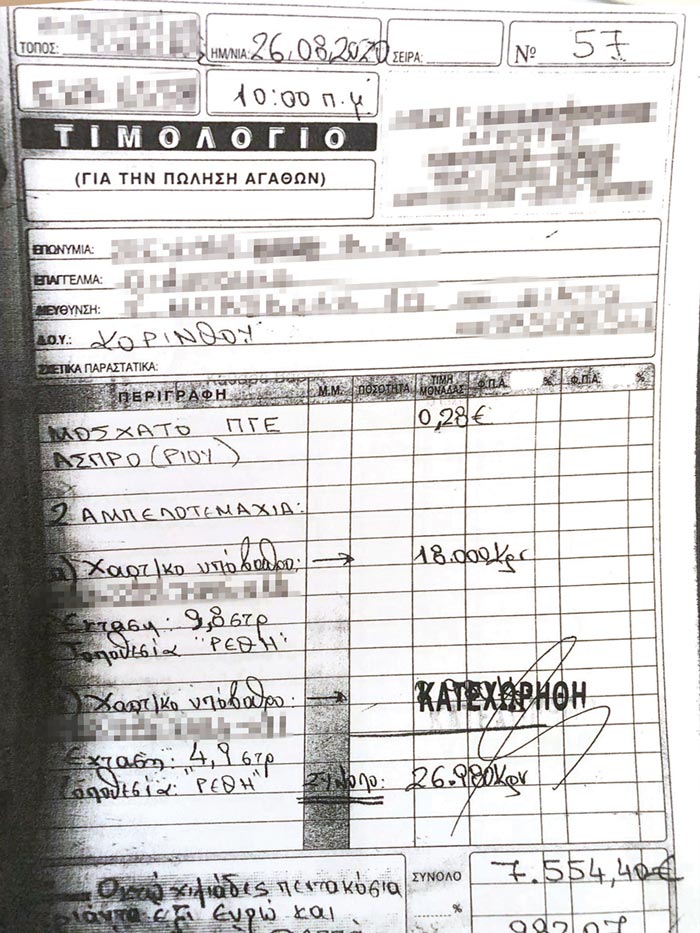 ΤΟΠΟΣ:
ΗΜ/ΝΙΑ: 26.08.2020 ΣΕΙΡΑ:
Νο 57
10:00 π.μ
ΤΙΜΟΛΟΓΙΟ
(ΓΙΑ ΤΗΝ ΠΩΛΗΣΗ ΑΓΑΘΩΝ)
ΕΠΩΝΥΜΙΑ:
ΕΠΑΓΓΕΛΜΑ:
ΔΙΕΥΘΥΝΣΗ:
Δ.Ο.Υ.: ΚΟΡΙΝΘΟΥ
ΣΧΕΤΙΚΑ ΠΑΡΑΣΤΑΤΙΚΑ:
ΠΕΡΙΓΡΑΦΗ Μ.Μ. ΠΟΣΟΤΗΤΑ ΤΙΜΗ ΜΟΝΑΔΑΣ Φ.Π.Α. % Φ.Π.Α. %
ΜΟΣΧΑΤΟ ΠΓΕ 0,28€
ΑΣΠΡΟ (ΡΙΟΥ)
2 ΑΜΠΕΛΟΤΕΜΑΧΙΑ:
α) Χαρτ/κο υπόβαθρο: → 18.000Κgr
Έκταση: 9,8 στρ
Τοποθεσία "ΡΕΘΗ"
) Χαρτ/κο υπόβαθρο: →
ΚΑΤΕΧΩΡΗΘΗ
Έκταση: 4,9 στρ
Τοποθεσία: "ΡΕΘΗ" ΣΥΝΟΛΟ: 26.980Κgr
Οκτώ χιλιάδες πεντακόσια ΣΥΝΟΛΟ 7.554,40€
έξι Ευρώ και %